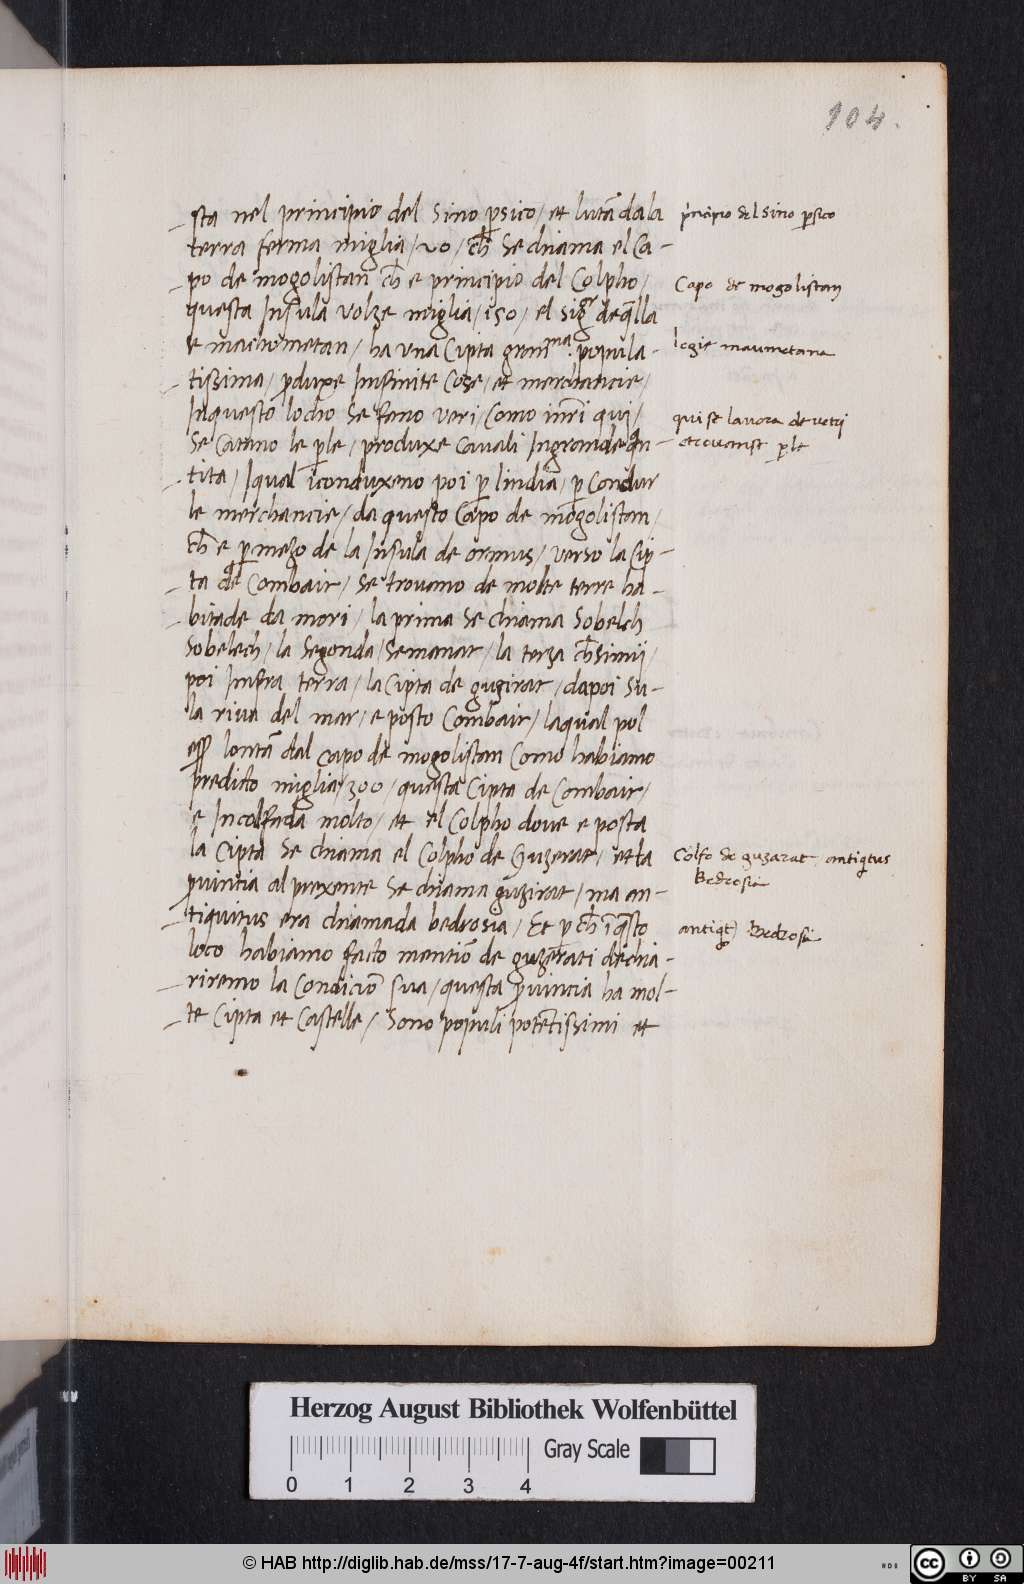 104.
sta nel principio del Sino p̱sico / et lutã dala
terra ferma miglia / 20 / ch̃ Se chiama el Ca-
po de mogolistan ch̃ e principio del Colpho /
questa Insula volze miglia / 150 / el sig.r de q̃lla
e machometan / ha una Cipta grm̃ma popula-
tissima / ꝓduxe Infinite Cose / et merchancie /
Inquesto locho Se feno veri / Como
Se Catano le p̱le / produxe Cavali Ingrande qñ-
tita / Iqual icõnduxeno poi p̱ lindia / p̱ Condur
le merchancie / da questo Capo de mõgolistan /
ch̃ e p̱ mezo de la Insula de ormus / verso la Cip-
ta de Combair / Se trovano de molte terre ha-
bitade da mori / la prima Se chiama Sobelch
Sobelech / la Segonda / Semanat / la terza
poi Infra terra / la Cipta de guzirat / dapoi Su-
la riva del mar / e posto Combair / laqual pol
lontã dal capo de mogolistan Como habiamo
predicto miglia / 300 / questa Cipta de Combair /
e Incolfada molto / et el Colpho dove e posta
la Cipta Se chiama el Colpho de Guzerat / et la
ꝓuintia al prexente Se chiama guzirat / ma an-
tiquitus era chiamada bedrosia / Et ꝑ ch̃ ĩ q̃sto
loco habiamo facto mentiõ de guzerati dechia-
riremo la Condiciõ sua / questa ꝓuincia ha mol-
te Cipta et Castelle / Sono populi potẽtissimi et
p̃ncipio del Sino p̱sico
Capo de mogolistan
legie maumetana
qui se lavora de vetri
p̱le
Colfo de guzarat antiq̃tus
Bedrosia
antiqt̃ Bedrosia
Herzog August Bibliothek Wolfenbüttel
Gray Scale
0 1 2 3 4
© HAB http://diglib.hab.de/mss/17-7-aug-4f/start.htm?image=00211
cc BY SA